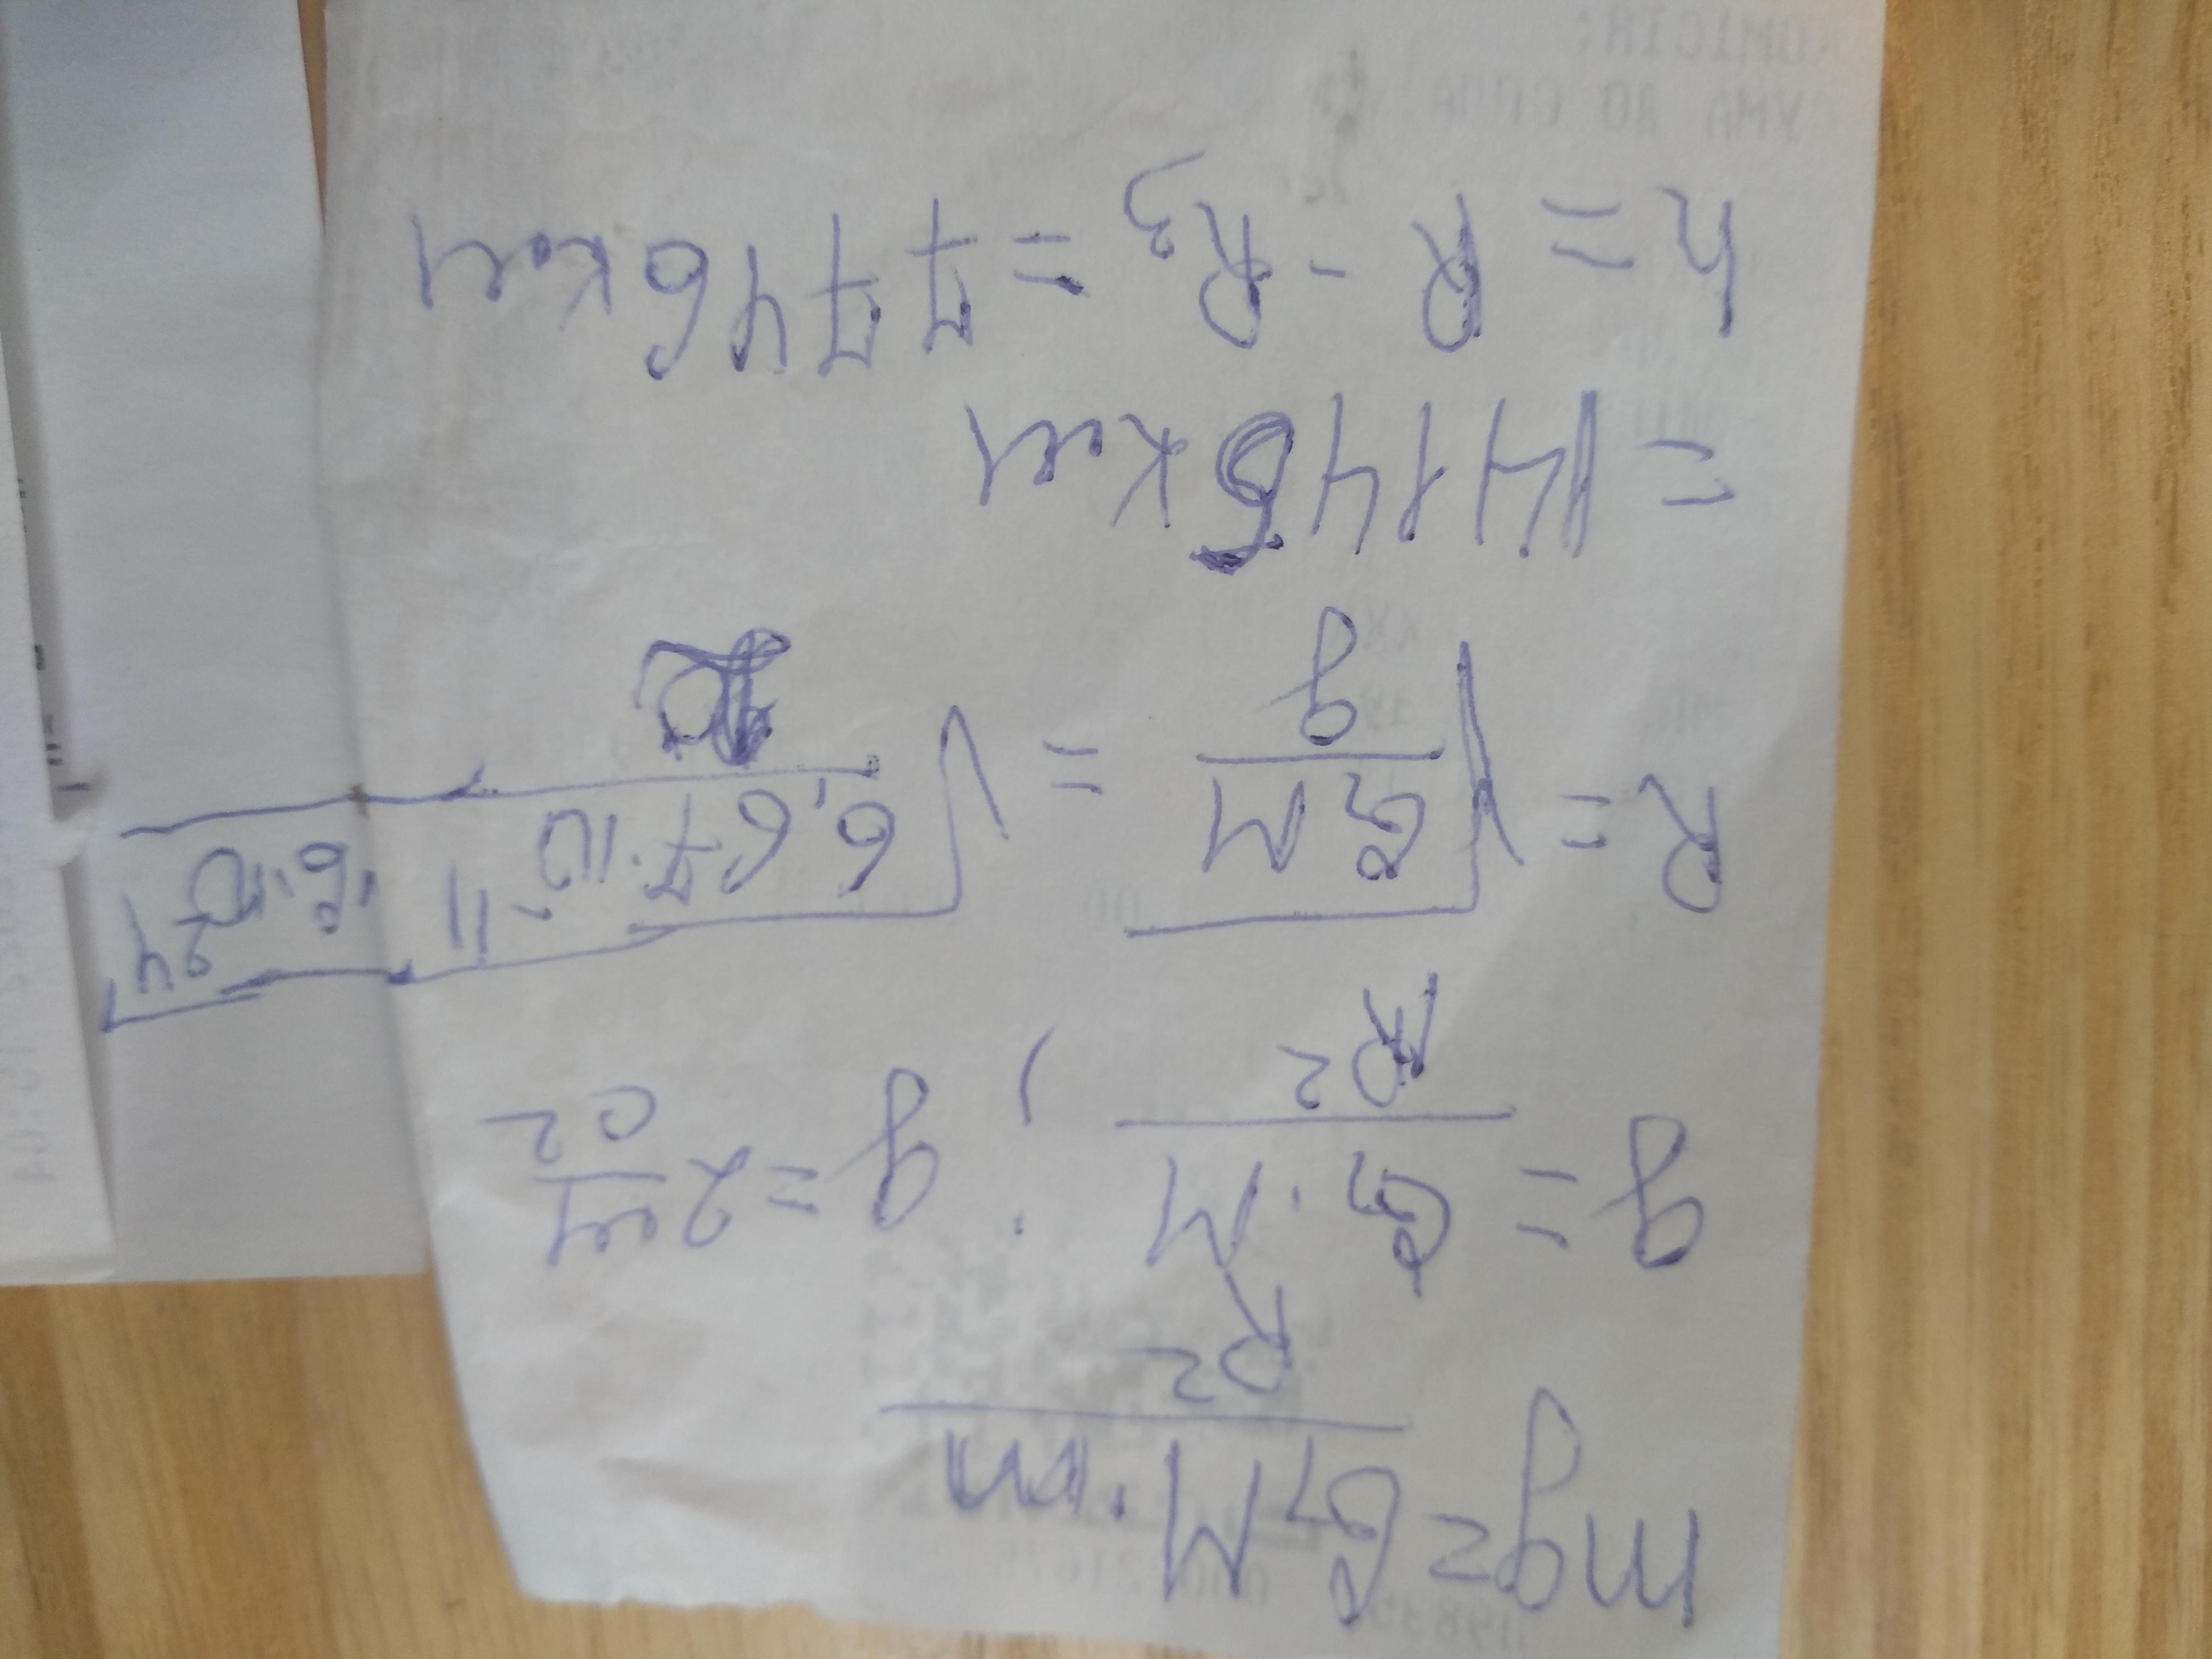 mg = G M · m / R²
g = G · M / R² ; g = 2 м/с²
R = √(G M / g) = √(6,67 · 10⁻¹¹ · 6 · 10²⁴ / 2)
= 14146 км
h = R - Rз = 7746 км